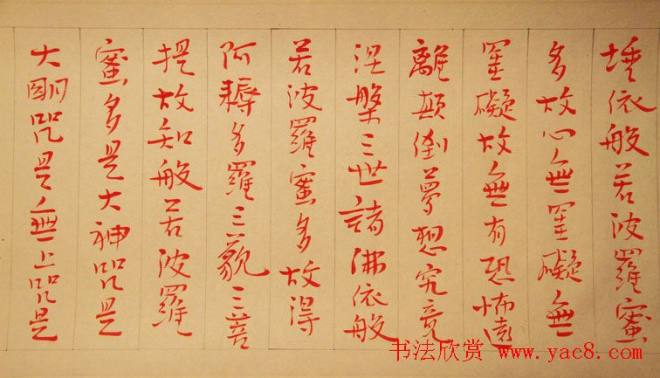 埵依般若波羅蜜
多故心無罣礙無
罣礙故無有恐怖遠
離顛倒夢想究竟
涅槃三世諸佛依般
若波羅蜜多故得
阿耨多羅三藐三菩
提故知般若波羅
蜜多是大神咒是
大明咒是無上咒是
书法欣赏 www.yac8.com